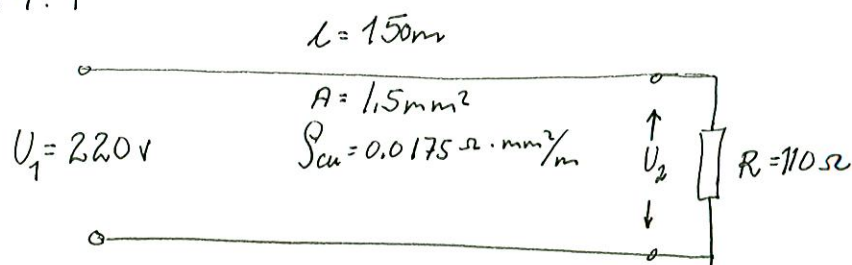 l = 150m
A = 1,5mm²
U₁ = 220 V
ρcu = 0.0175 Ω · mm²/m
U₂
R = 110 Ω